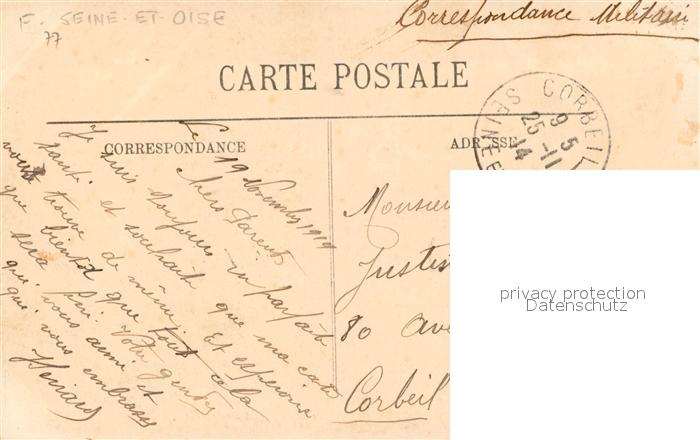 F. SEINE-ET-OISE
77
Correspondance Militaire
CARTE POSTALE
CORRESPONDANCE
ADRESSE
CORBEIL
SEINE E
9 5
25 -11
14
Le 19 Novembre 1914
Chers Parents
Je suis toujours en parfaite
santé et souhaite que ma carte
vous trouve de même. Et espérons
que bientôt que tout cela
sera fini. Votre
qui vous aime et
qui vous embrasse
Monsieur
80 Ave
Corbeil
privacy protection
Datenschutz